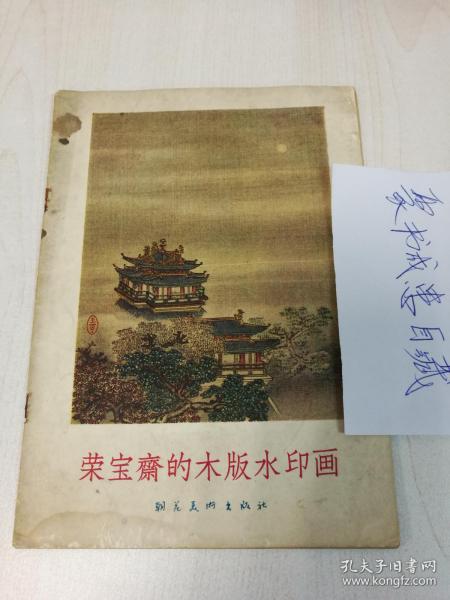 荣宝齋的木版水印画
朝花美術出版社
聚书成 自藏
孔夫子旧书网
www.kongfz.com